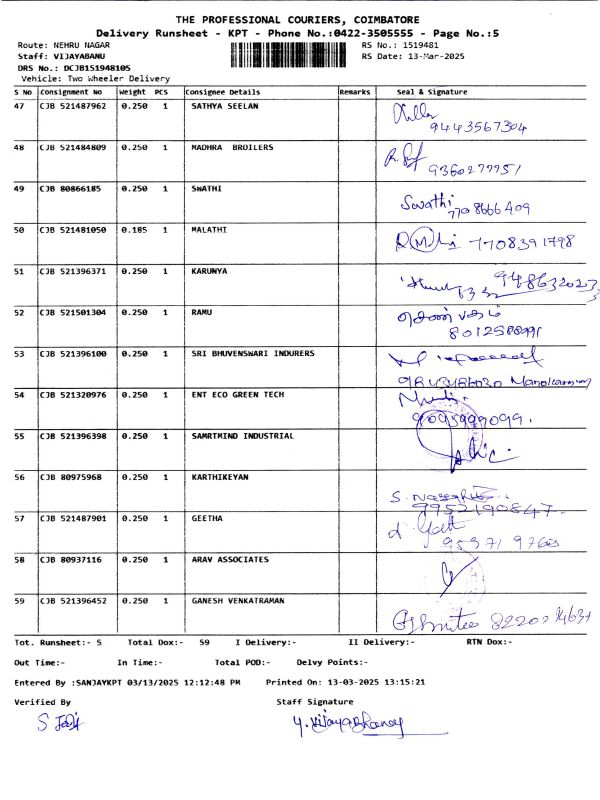 THE PROFESSIONAL COURIERS, COIMBATORE
Delivery Runsheet - KPT - Phone No.:0422-3505555 - Page No.:5
Route: NEHRU NAGAR RS No.: 1519481
Staff: VIJAYABANU RS Date: 13-Mar-2025
DRS No.: DCJB151948105
Vehicle: Two Wheeler Delivery
S No Consignment No Weight PCS Consignee Details Remarks Seal & Signature
47 CJB 521487962 0.250 1 SATHYA SEELAN
9443567304
48 CJB 521484809 0.250 1 MADHRA BROILERS
9360277951
49 CJB 80866185 0.250 1 SWATHI Swathi
7708666409
50 CJB 521481050 0.185 1 MALATHI 7708391798
51 CJB 521396371 0.250 1 KARUNYA 9486320233
52 CJB 521501304 0.250 1 RAMU
53 CJB 521396100 0.250 1 SRI BHUVENSWARI INDURERS
54 CJB 521320976 0.250 1 ENT ECO GREEN TECH
9095999099.
55 CJB 521396398 0.250 1 SAMRTMIND INDUSTRIAL
56 CJB 80975968 0.250 1 KARTHIKEYAN
S.
9952190847
57 CJB 521487901 0.250 1 GEETHA
58 CJB 80937116 0.250 1 ARAV ASSOCIATES
59 CJB 521396452 0.250 1 GANESH VENKATRAMAN
Tot. Runsheet:- 5 Total Dox:- 59 I Delivery:- II Delivery:- RTN Dox:-
Out Time:- In Time:- Total POD:- Delvy Points:-
Entered By :SANJAYKPT 03/13/2025 12:12:48 PM Printed On: 13-03-2025 13:15:21
Verified By Staff Signature
Y. Vijaya Bhanay